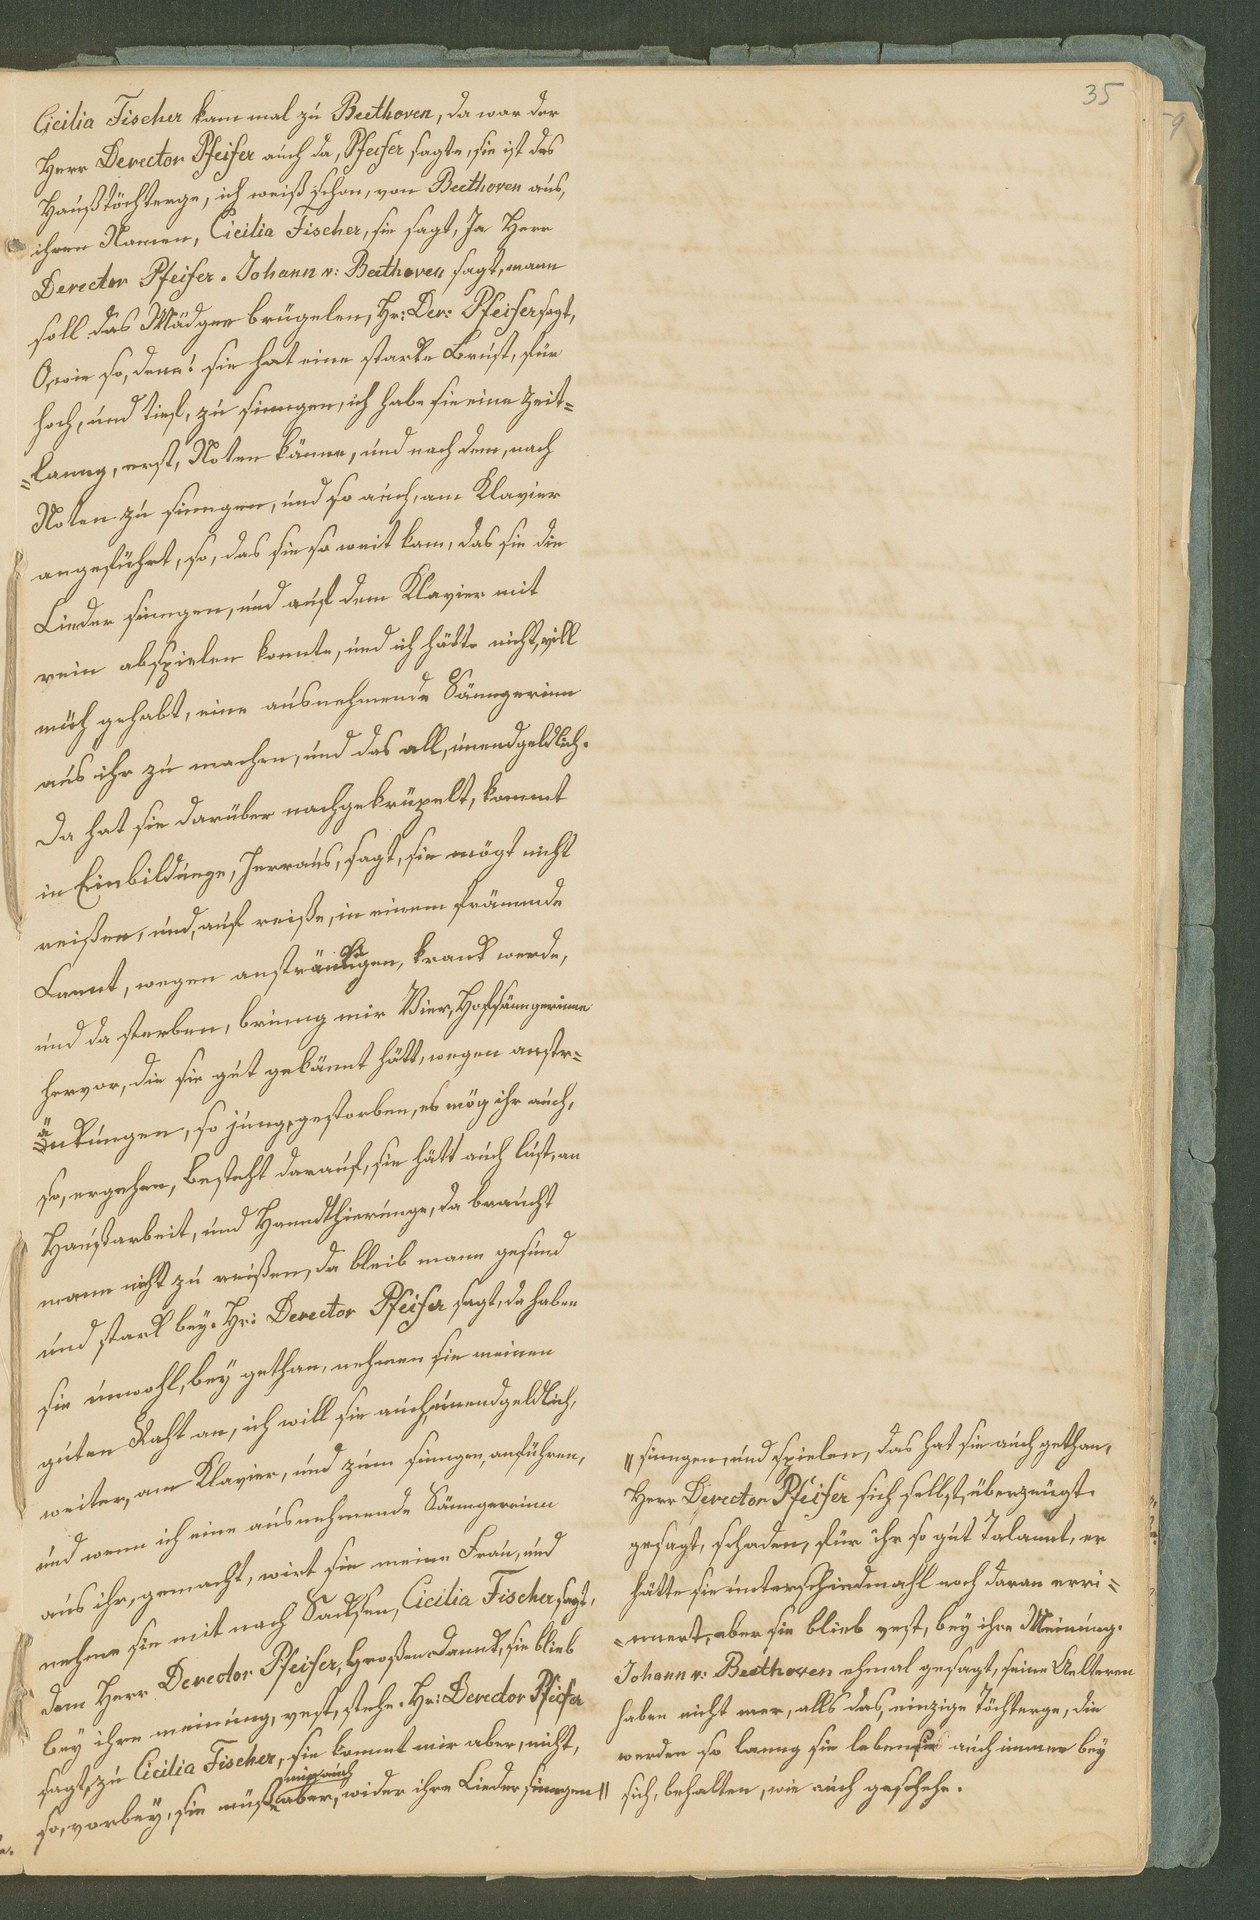 35
Cicilia Fischer kam mal zu Beethoven, da war der
Herr Derector Pfeifer auch da, Pfeifer sagte, sie ist das
Haußtöchterge, ich weiß schon, von Beethoven aus,
ihren Namen, Cicilia Fischer, sie sagt, Ja Herr
Derector Pfeifer. Johann v: Beethoven sagt, mann
soll das Mädgen brügelen, Hr: Der: Pfeifer sagt,
O, wie so, denn! sie hat eine starke Brust, für
hoch, und tief, zu sinngen, ich habe sie eine Zeit=
=lanng, erst, Noten känne, und nach dem, nach
Noten zu sinngen, und so auch, am Klavier
angeführt, so, das sie so weit kam, das sie die
Lieder sinngen, und auf dem Klavier mit
rein abspielen konnte, und ich hätte nicht, vill
müh gehabt, eine ausnehmende Sänngerinn
aus ihr zu machen, und das all, unendgeldlich.
Da hat sie darüber nachgekrüpelt, kommt
in Einbildunge, herraus, sagt, sie mögt nicht
reißen, und, auf reiße, in einem främmde
Lannt, wegen anstränkungen, krank werde,
und da sterben, brinng mir Vier, Hofsänngerinne
hervor, die sie gut gekännt hätt, wegen anstr=
änkungen, so jung, gestorben, es mög ihr auch,
so, ergehen, besteht darauf, sie hätt auch lust, an
Haußarbeit, und Hanndthierunge, da braucht
mann nicht zu reißen, da bleib mann gesund
und stark bey. Hr: Derector Pfeifer sagt, da haben
sie unwohl, bey gethan, nehmen sie meinen
guten Raht an, ich will sie auch, unendgeldlich,
weiter, am Klavier, und zum sinngen, anführen,
und wenn ich eine ausnehmende Sänngerinn
aus ihr, gemacht, wirt sie meine Frau, und
nehme sie mit nach Sacksen, Cicilia Fischer sagt,
dem Herr Derector Pfeifer, großen Dannk, sie blieb
bey ihre meinung, vest, stehe. Hr: Derector Pfeifer
sagt, zu Cicilia Fischer, sie kommt mir aber, nicht,
so, vorbey, sie müße aber, mir auch wider ihre Lieder sinngen //
// sinngen, und spielen, das hat sie auch gethan,
Herr Derector Pfeifer sich selbst, überzeugt.
gesagt, schaden, für ihr so gut Talannt, er
hätte sie unterschiedmahl noch daran erri=
=nnert, aber sie blieb vest, bey ihre Meinung.
Johann v: Beethoven ehmal gesagt, seine Aelteren
haben nicht mer, alls das, einzige Töchterge, die
werden so lanng sie leben sie auch immer bey
sich, behalten, wie auch geschehe.